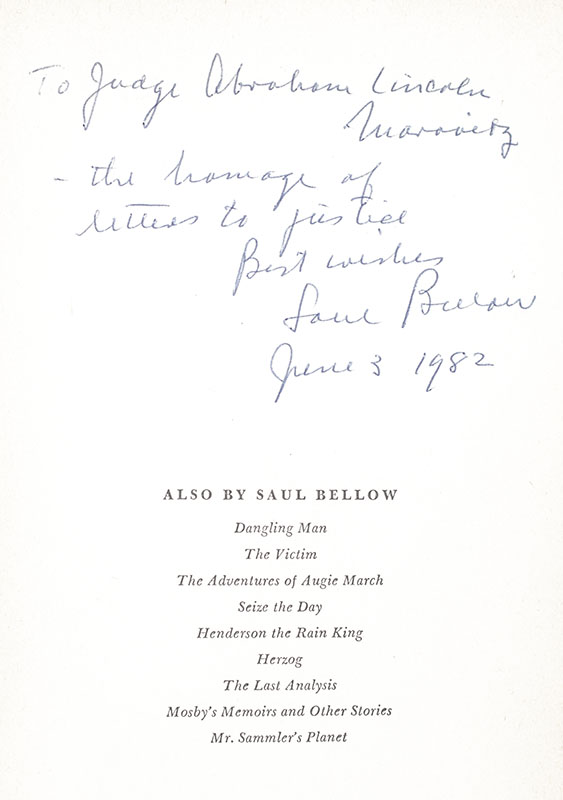 To Judge Abraham Lincoln
Marovitz
- the homage of
letters to justice
Best wishes
Saul Bellow
June 3 1982
ALSO BY SAUL BELLOW
Dangling Man
The Victim
The Adventures of Augie March
Seize the Day
Henderson the Rain King
Herzog
The Last Analysis
Mosby's Memoirs and Other Stories
Mr. Sammler's Planet